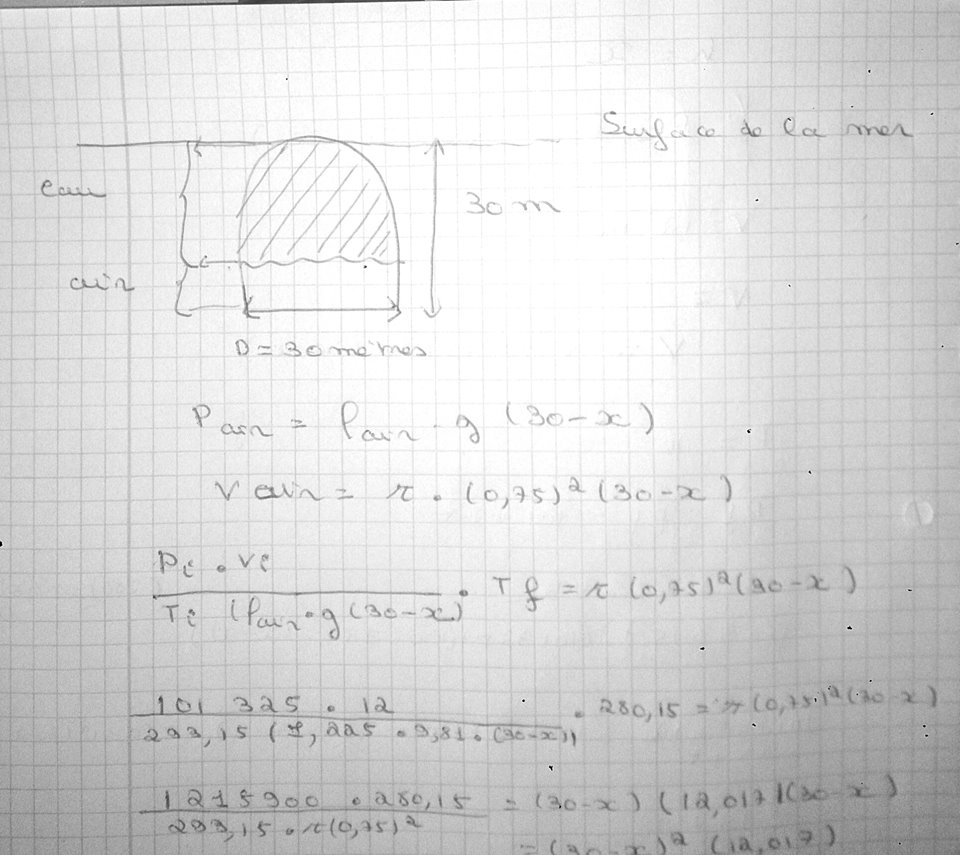 Surface de la mer
eau
30 m
air
D = 30 mètres
Pair = ρair · g (30 - x)
Vair = π · (0,75)² (30 - x)
Pi · Vi / Ti (ρair · g (30 - x)) · Tf = π (0,75)² (30 - x)
101 325 · 12 / 293,15 (1,225 · 9,81 · (30 - x)) · 280,15 = π (0,75)² (30 - x)
1215900 · 280,15 / 293,15 · π (0,75)² = (30 - x) (12,017) (30 - x)
= (30 - x)² (12,017)